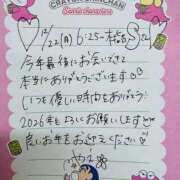 CRAYON SHINCHAN
12/22(月) 6:25-本指名
今年最後にお会いできて
本当にありがとうございます
いつも優しい時間をありがとう
2026年もよろしくお願いします
良いお年をお迎えください